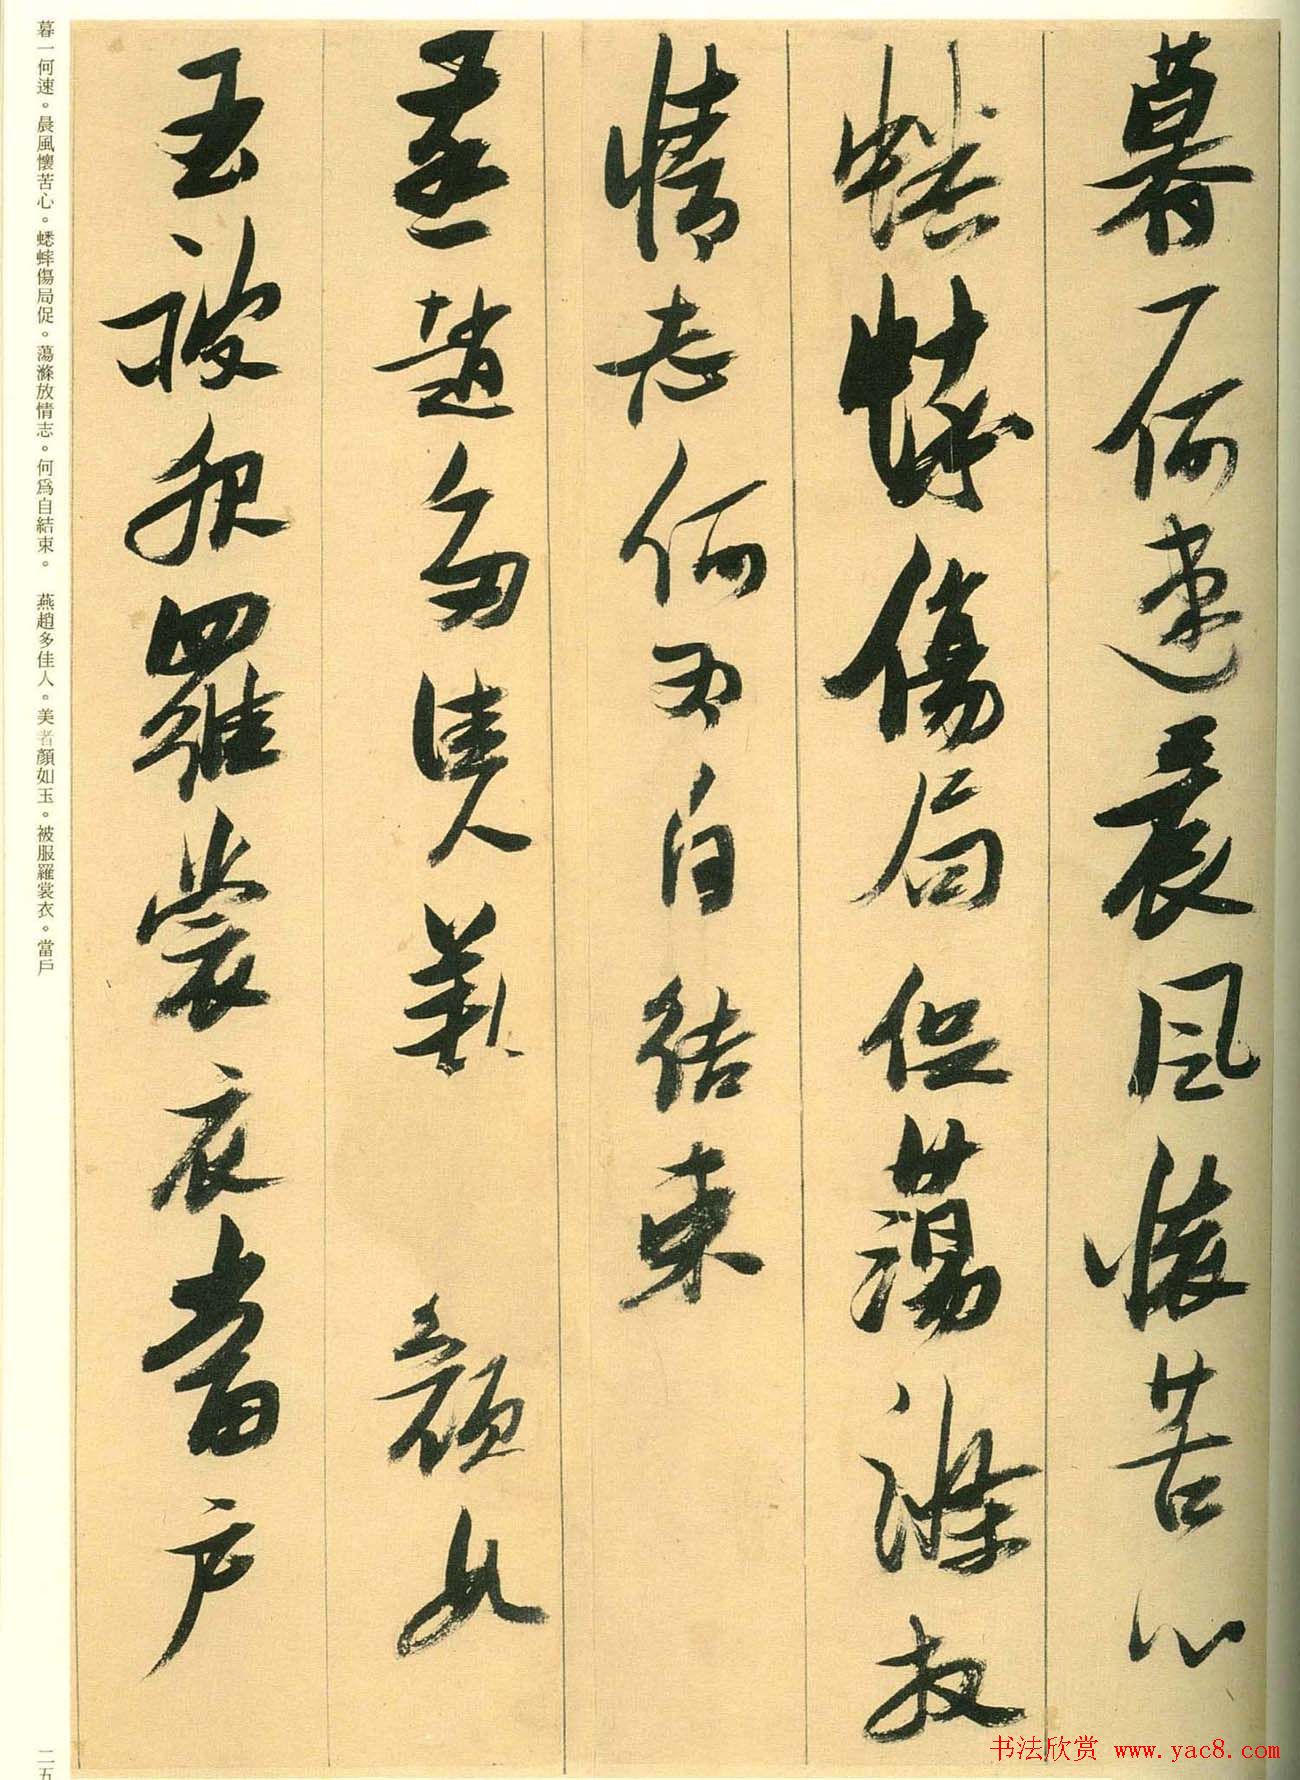 暮一何速晨風懷苦心
蟋蟀傷局促蕩滌放
情志何為自結束
燕趙多佳人美顏如
玉被服羅裳衣當戶
暮一何速。晨風懷苦心。蟋蟀傷局促。蕩滌放情志。何爲自結束。 燕趙多佳人。美者顏如玉。被服羅裳衣。當戶
二五
书法欣赏 www.yac8.com